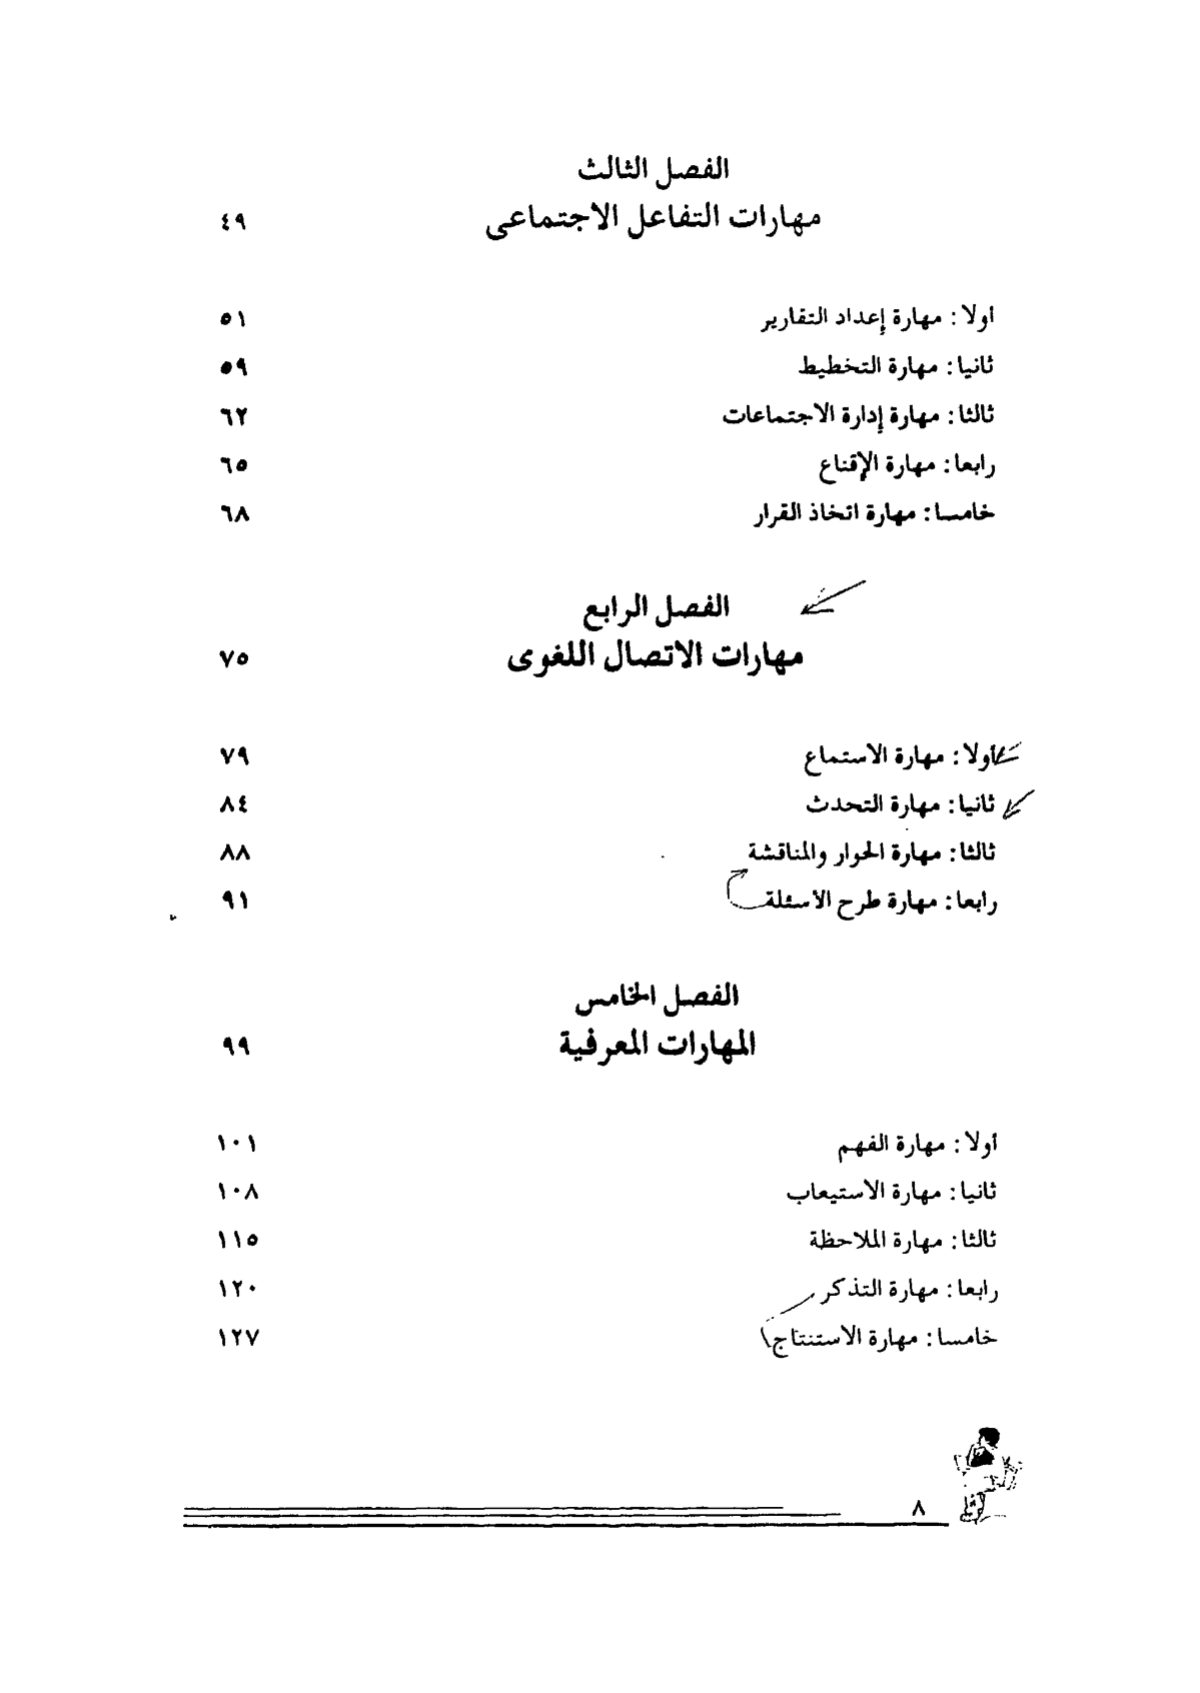 الفصل الثالث
مهارات التفاعل الاجتماعى ٤٩
أولا : مهارة إعداد التقارير ٥١
ثانيا : مهارة التخطيط ٥٩
ثالثا : مهارة إدارة الاجتماعات ٦٢
رابعا : مهارة الإقناع ٦٥
خامسا : مهارة اتخاذ القرار ٦٨
الفصل الرابع
مهارات الاتصال اللغوى ٧٥
أولا : مهارة الاستماع ٧٩
ثانيا : مهارة التحدث ٨٤
ثالثا : مهارة الحوار والمناقشة ٨٨
رابعا : مهارة طرح الأسئلة ٩١
الفصل الخامس
المهارات المعرفية ٩٩
أولا : مهارة الفهم ١٠١
ثانيا : مهارة الاستيعاب ١٠٨
ثالثا : مهارة الملاحظة ١١٥
رابعا : مهارة التذكر ١٢٠
خامسا : مهارة الاستنتاج ١٢٧
٨